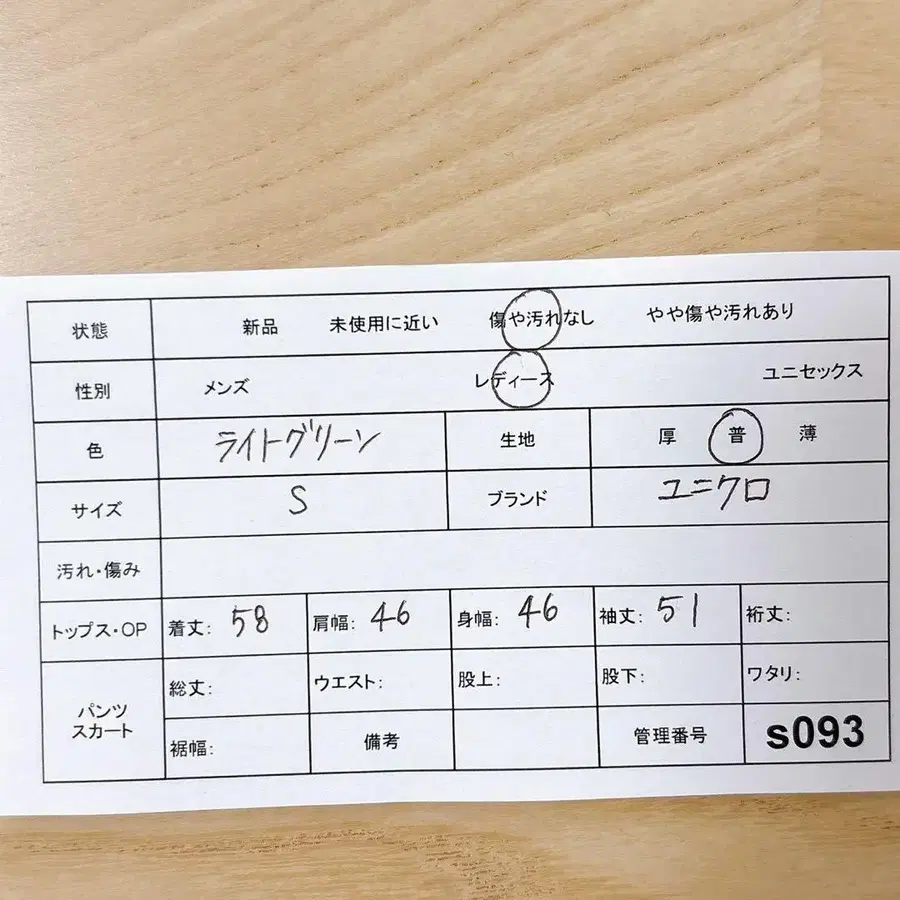 状態 新品 未使用に近い 傷や汚れなし やや傷や汚れあり
性別 メンズ レディース ユニセックス
色 ライトグリーン 生地 厚 普 薄
サイズ S ブランド ユニクロ
汚れ・傷み
トップス・OP 着丈: 58 肩幅: 46 身幅: 46 袖丈: 51 裄丈:
パンツ
スカート
総丈: ウエスト: 股上: 股下: ワタリ:
裾幅: 備考 管理番号 s093